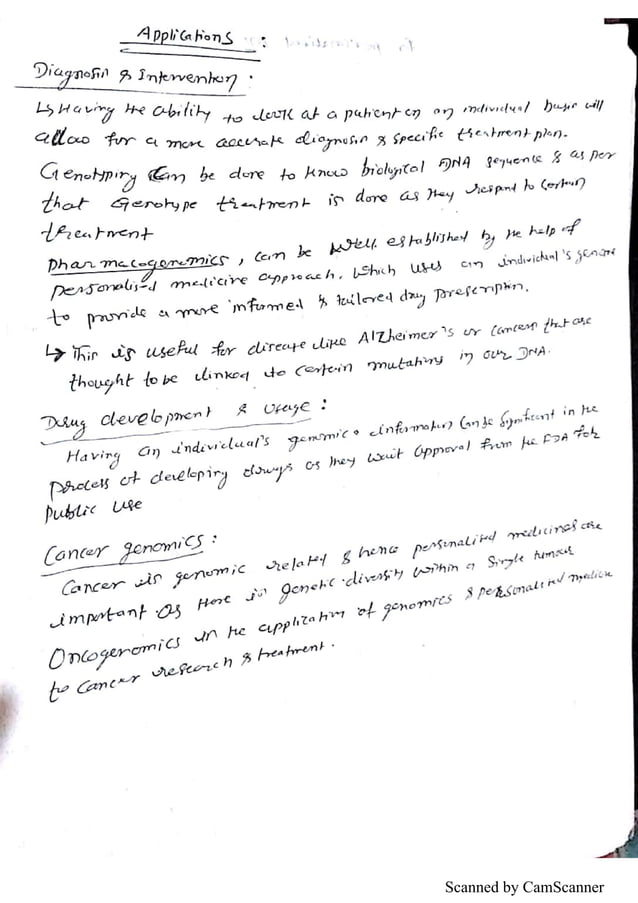 Applications :
Diagnosis & Intervention :
↳ Having the ability to look at a patient on an individual basis will
allow for a more accurate diagnosis & specific treatment plan.
Genotyping can be done to know biological DNA sequence & as per
that Genotype treatment is done as they respond to certain
treatment
Pharmacogenomics, can be well established by the help of
personalised medicine approach. Which uses an individual's genome
to provide a more informed & tailored drug prescription.
↳ This is useful for disease like Alzheimer's or cancers that are
thought to be linked to certain mutations in our DNA.
Drug development & Usage :
Having an individual's genomic information can be significant in the
process of developing drugs as they wait approval from the FDA for
public use
Cancer genomics :
Cancer is genomic related & hence personalised medicines are
important. As there is genetic diversity within a single tumour
Oncogenomics is the application of genomics & personalised medicine
to cancer research & treatment.
Scanned by CamScanner